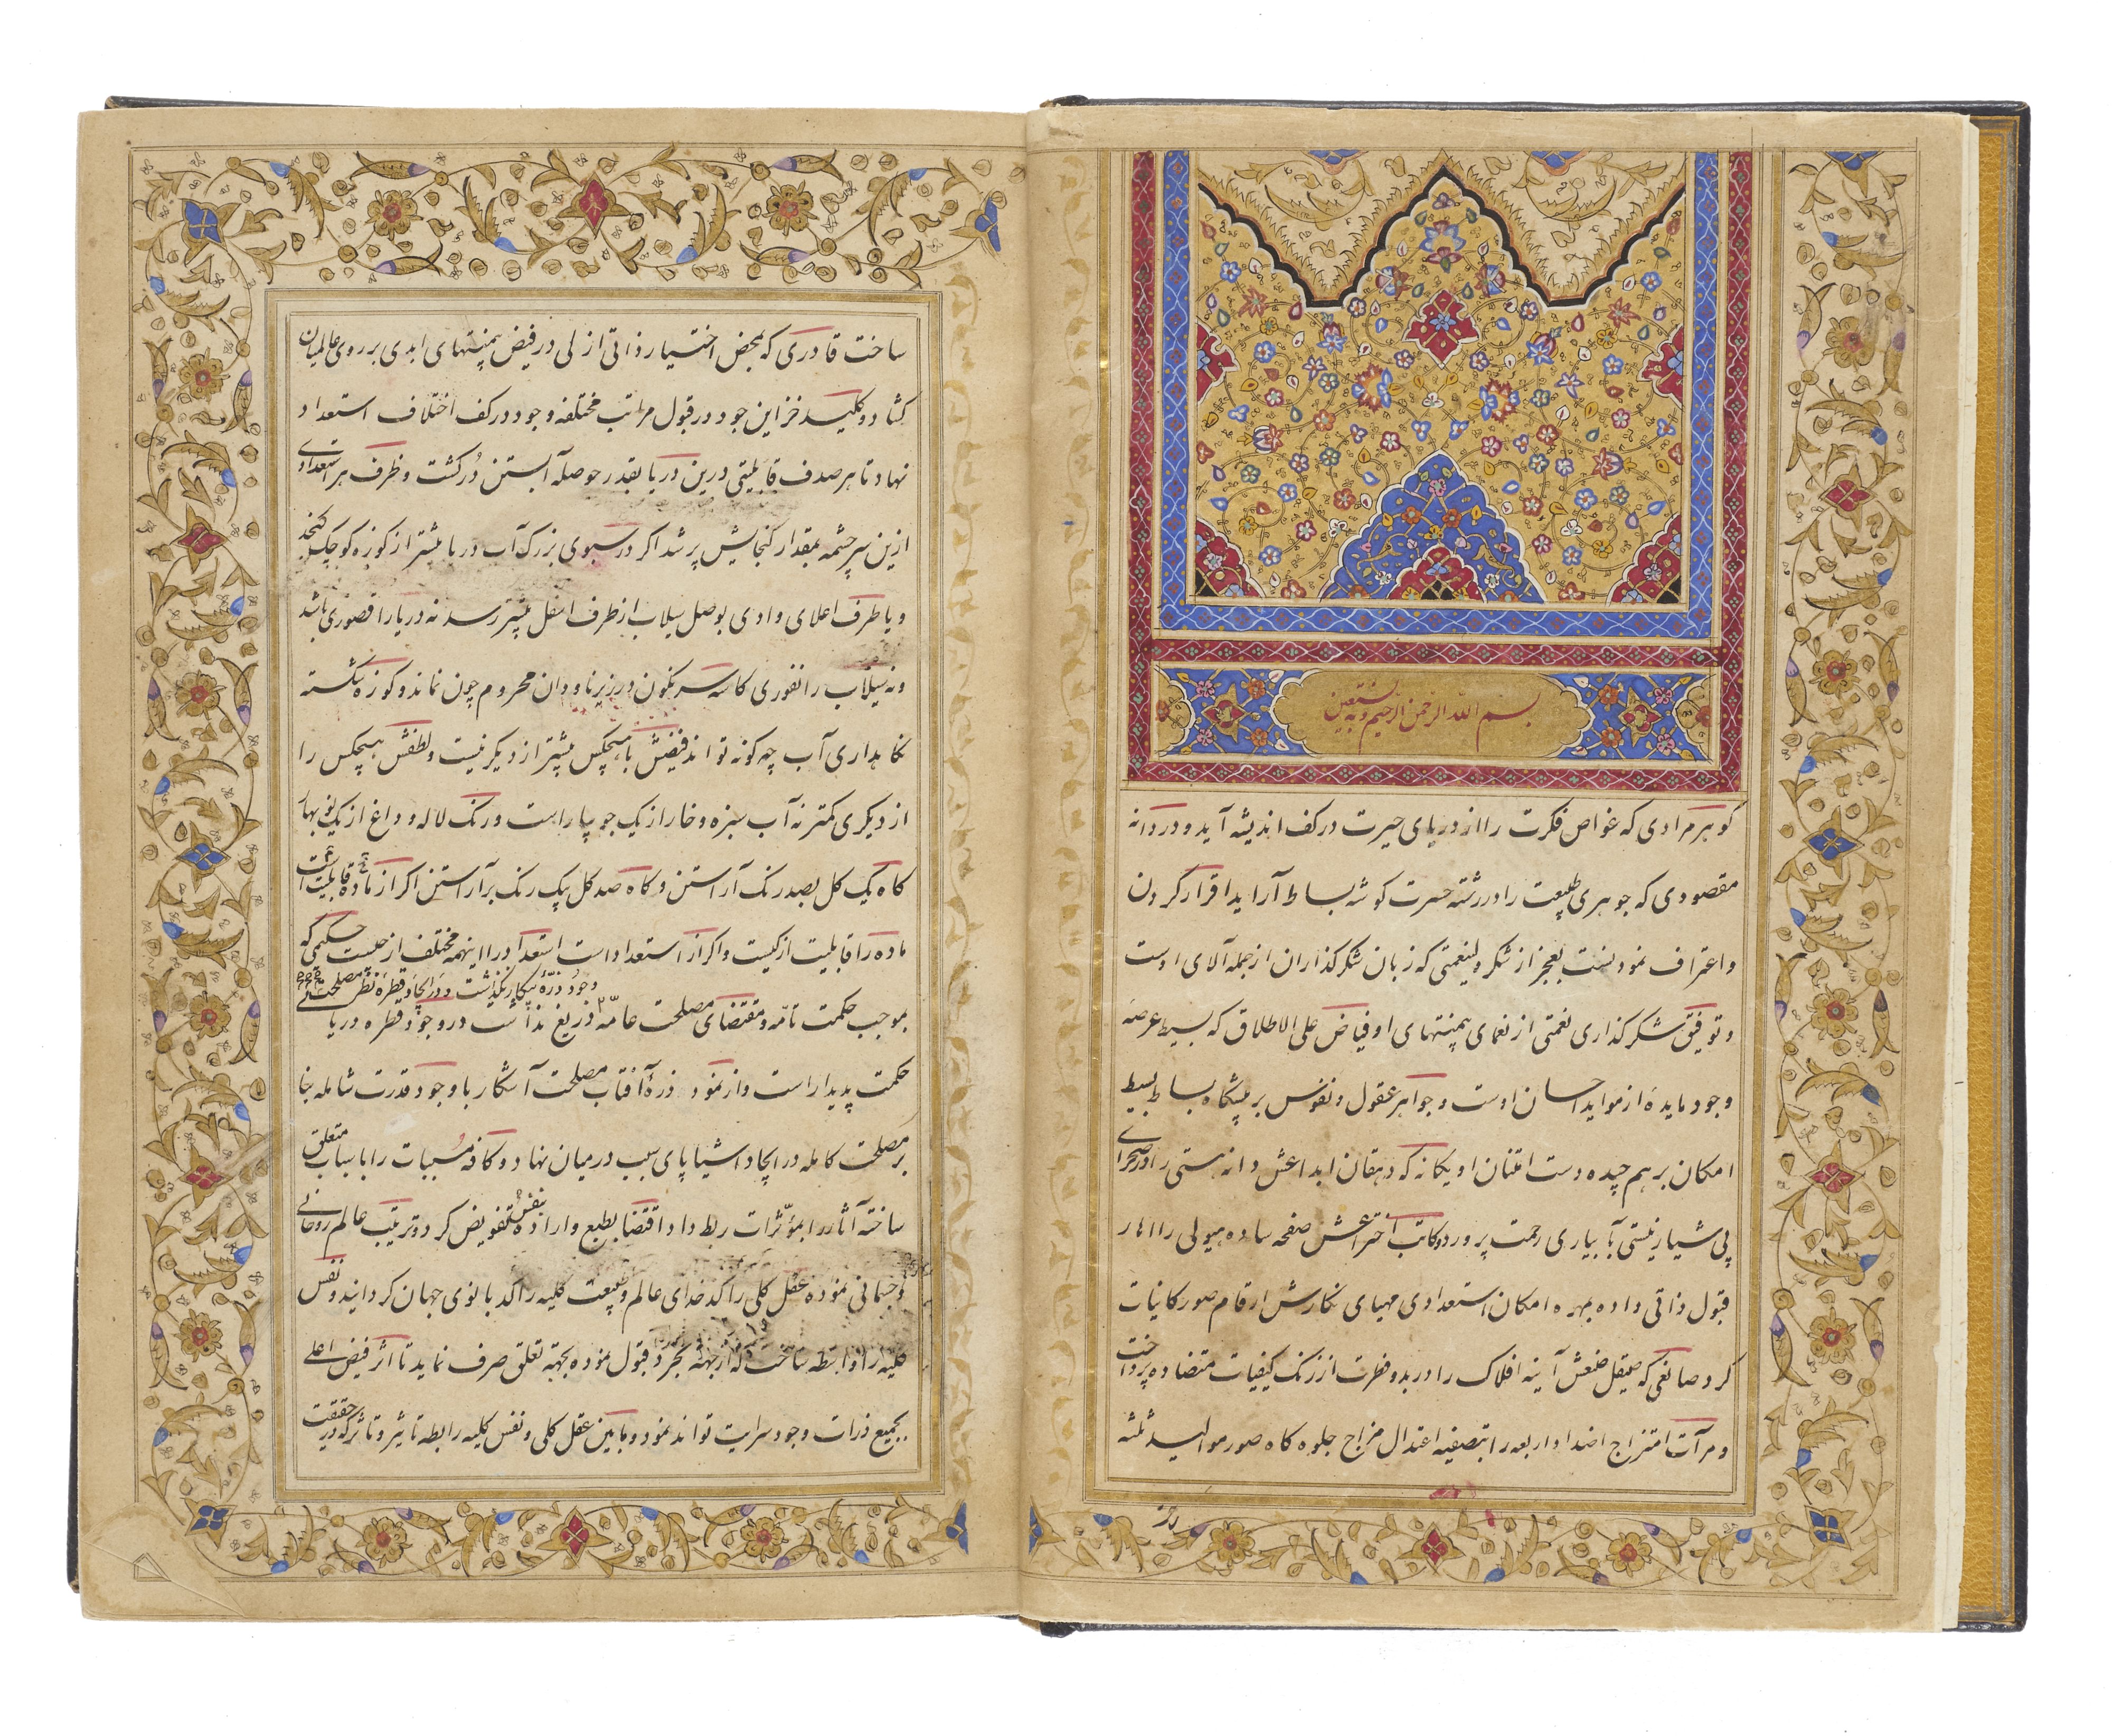 بسم الله الرحمن الرحیم وبه نستعین
کوهر مرادی که غواص فکرت را از دریای حیرت در کف اندیشه آید و دردانه
مقصودی که جوهری طبیعت را در رشته حسرت کوشه بساط آراید اقرار کردن
و اعتراف نمودنست بعجز از شکر ولینعمتی که زبان شکر کذاران از جمله آلای اوست
و توفیق شکر کذاری نعمتی از نعمای بیمنتهای او فیاض علی الاطلاق که بسیط عرصه
وجود مایده از مواید احسان اوست و جواهر عقول و نفوس بر پیشکاه بساط بسیط
امکان بر هم چیده دست امتنان او یکانه که دهقان ابداعش دانه هستی را در صحرای
بی شیار نیستی بآبیاری رحمت پرورد و کاتب اختراعش صفحه ساده هیولی را اهار
قبول ذاتی داده بمهره امکان استعدادی مهیای نکارش ارقام صور کاینات
کرد صانعی که صیقل صنعش آینه افلاک را در بدو فطرت از زنک کیفیات متضاده پرداخت
و مرآت امتزاج اضداد اربعه را بتصفیه اعتدال مزاج جلوه کاه صور موالید ثلثه
ساخت قادری که بمحض اختیار ذاتی ازلی در فیض بیمنتهای ابدی بر روی عالمیان
کشاد و کلید خزاین جود در قبول مراتب مختلفه وجود در کف اختلاف استعداد
نهاد تا هر صدف قابلیتی درین دریا بقدر حوصله آبستن دُر کشت و ظرف هر استعدادی
ازین سرچشمه بمقدار کنجایش پر شد اکر در سبوی بزرک آب دریا بیشتر از کوزه کوچک کنجد
و یا طرف اعلای وادی بوصل سیلاب از طرف اسفل پیشتر رسد نه دریا را قصوری باشد
و نه سیلاب را نفوری کاسه سرنکون در زیر ناودان محروم چون نماند و کوزه شکسته
نکاهداری آب چه کونه تواند فیضش با هیچکس بیشتر از دیکر نیست و لطفش هیچکس را
از دیکری کمتر نه آب سبزه و خار از یک جویبار است و رنک لاله و داغ از یک نوبهار
کاه یک کل بصد رنک آراستن و کاه صد کل بیک رنک بر آراستن اکر از ماده قابلیت است
ماده را قابلیت از کیست و اکر از استعداد است استعداد را اینهمه مختلف از چیست حکیمی که
وجود ذره بیکار نکذاشت و در ایجاد قطره نظر مصلحت
بموجب حکمت تامّه و مقتضای مصلحت عامّه دریغ نداشت در وجود قطره دریا
حکمت پدیدار است و از نمود ذره آفتاب مصلحت آشکار با وجود قدرت شامله بنا
بر مصلحت کامله در ایجاد اشیا پای سبب در میان نهاد و کافه مسببات را باسباب متعلق
ساخته آثار را بمؤثرات ربط داد اقتضا بطبع و اراده بنفس تفویض کرد و ترتیب عالم روحانی
و جسمانی نموده عقل کلی را کدخدای عالم و طبیعت کلیه را کدبانوی جهان کردانید و نفس
کلیه را واسطه ساخت که از جهة تجرد قبول نموده بجهة تعلق صرف نماید تا اثر فیض اعلی
بجمیع ذرات وجود سرایت تواند نمود و مابین عقل کلی و نفس کلیه رابطه تاثیر و تاثر که در حقیقت